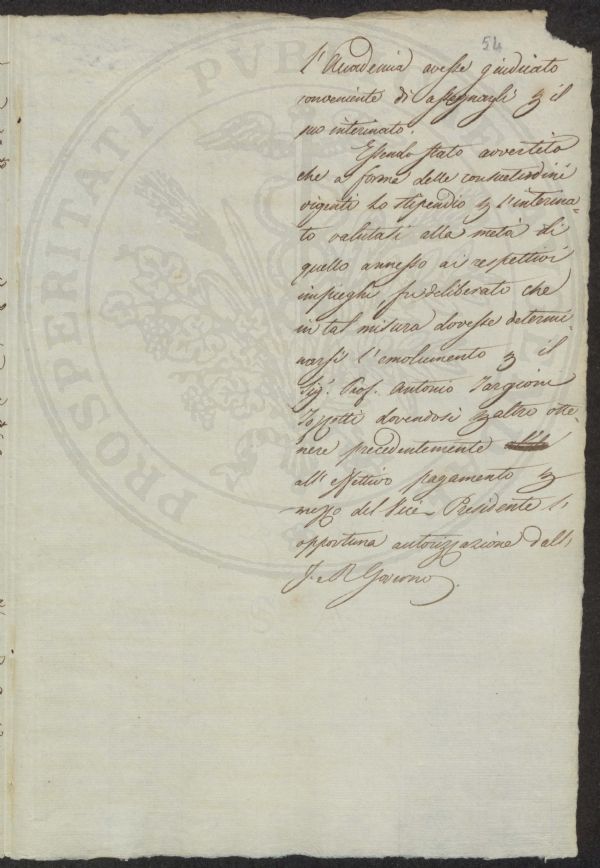 54
l'Accademia avesse giudicato
conveniente di assegnargli p il
suo interinato.
Essendo stato avvertito
che a forma delle consuetudini
vigenti lo stipendio p l'interina-
to valutasi alla metà di
quello annesso ai respettivi
impieghi, fu deliberato che
in tal misura dovesse determi-
narsi l'emolumento p il
Sig.r Prof. Antonio Targioni
Tozzetti dovendosi paltro otte-
nere precedentemente
all'effettivo pagamento p
mezzo del Vice-Presidente l'
opportuna autorizzazione dall'
I. e R. Governo.
PROSPERITATI PUBLICAE